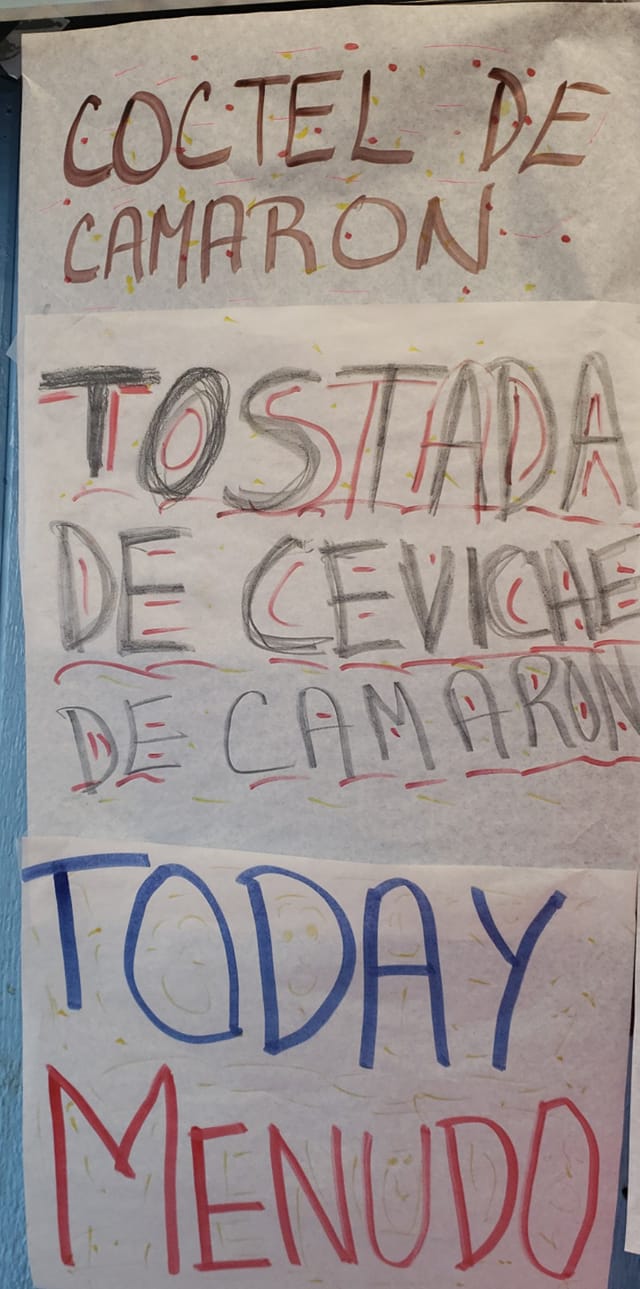 COCTEL DE
CAMARON
TOSTADA
DE CEVICHE
DE CAMARON
TODAY
MENUDO